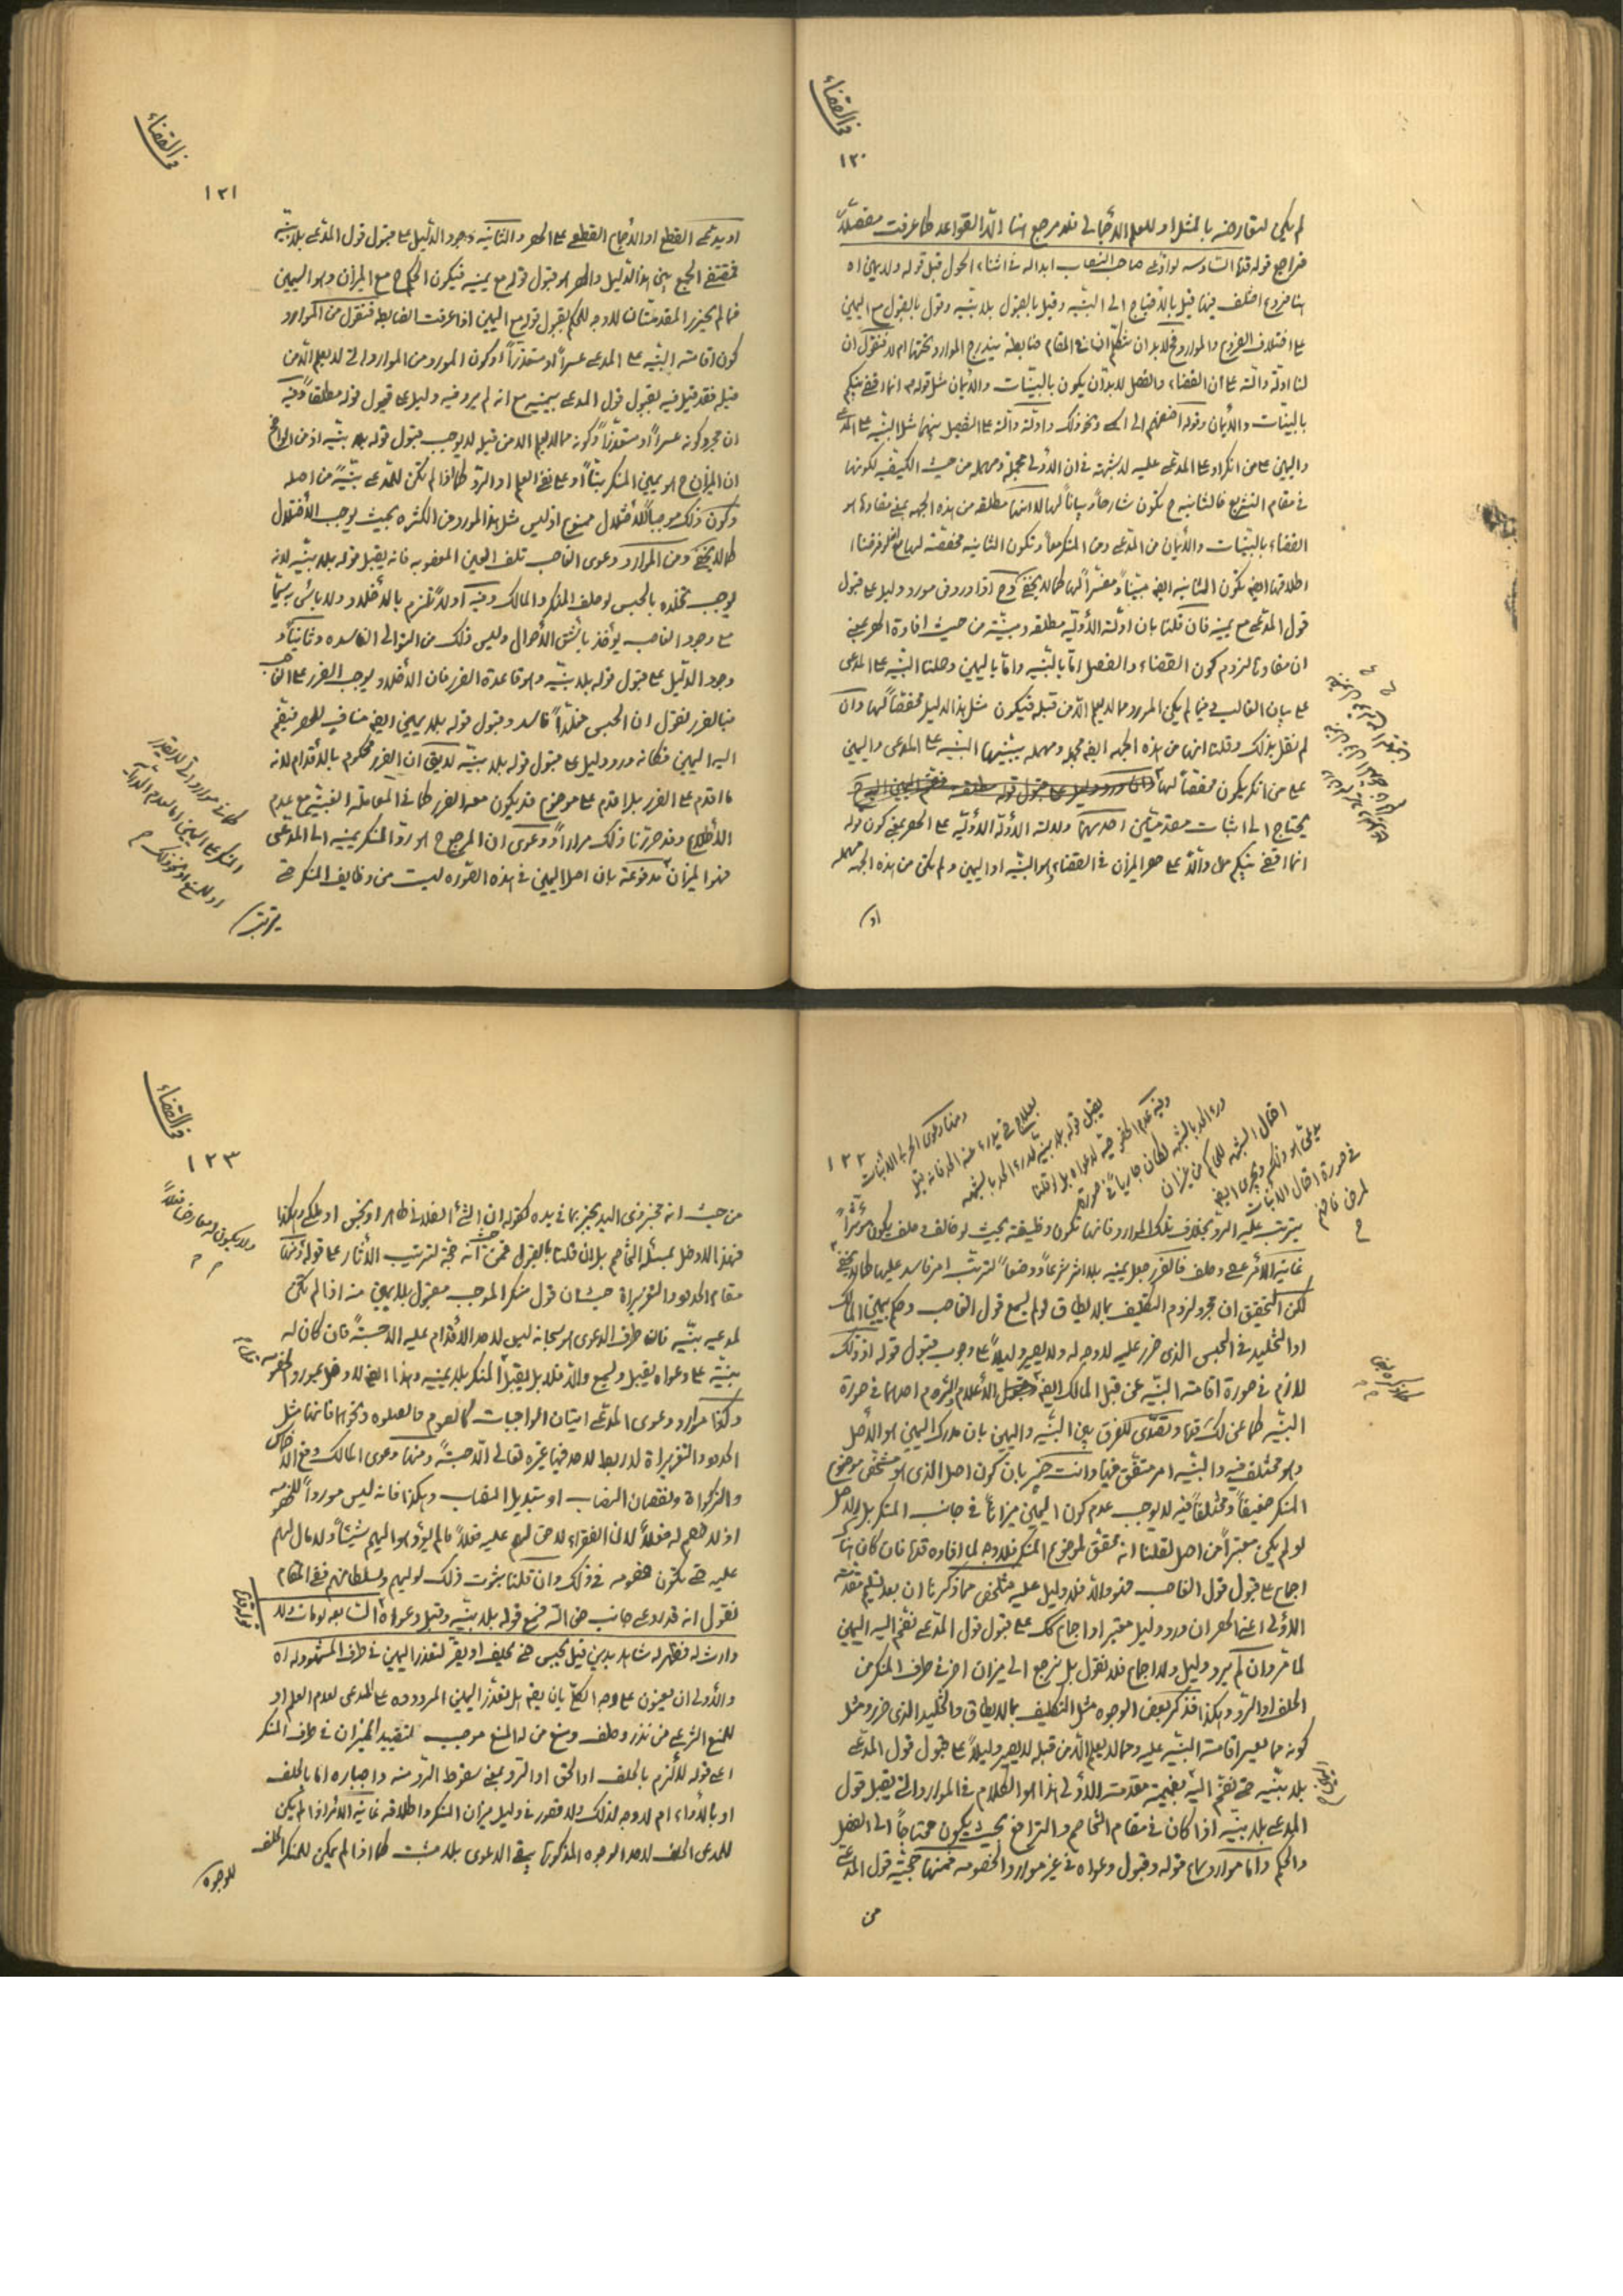 في القضاء
١٢٠
لم يكن لتعارضه بالمثل او للعلم الاجمالي فلا مرجع هنا الا القواعد كما عرفت مفصلاً
فراجع قوله قده السادسه لو ادعى صاحب النصاب ابداله في اثناء الحول قبل قوله ولا يمين اه
هنا فروع اختلف فيها قيل بالاحتياج الى البينه وقيل بالقبول بلا بينه وقول بالقبول مع اليمين
على اختلاف الفروع والموارد فلا بد ان نتكلم ان في المقام ضابطة يندرج الموارد تحتها ام لا فنقول ان
لنا ادلة دالة على ان القضاء والفصل لا بد ان يكون بالبينات والايمان مثل قوله انما اقضي بينكم
بالبينات والايمان وقوله اضفهم الى اسمي ونحو ذلك وادلة دالة على التفصيل بينهما مثل البينه على المدعي
واليمين على من انكر او على المدعى عليه لا شبهة في ان الاولى مجملة ومهمله من حيث الكيفيه لكونها
في مقام التشريع فالثانيه تكون شارحاً وبياناً لها لا انها مطلقه من هذه الجهه بمعنى مفادها هو
القضاء بالبينات والايمان من المدعي ومن المنكر معاً وتكون الثانيه مخصصة لها مع لو فرضنا
اطلاقها ايضا تكون الثانيه ايضا مبيناً ومفسراً لها كما لا يخفى وح اذا ورد في مورد دليل على قبول
قول المدعي مع يمينه فان قلنا بان ادلته الاوليه مطلقه ومبينه من حيث افادة الحصر بمعنى
ان مفادها لزوم كون القضاء والفصل اما بالبينه واما باليمين وحملنا البينه على المدعي
على بيان الغالب فيما لم يكن المورد مما لا يعلم الا من قبله فيكون مثل هذا الدليل مخصصاً لها وان
لم نقل بذلك وقلنا انها من هذه الجهه ايضا مجمله ومهمله يبينها البينه على المدعي واليمين
على من انكر يكون مخصصاً لها
يحتاج الى اثبات مقدمتين احديهما دلالة الادلة الاوليه على الحصر بمعنى كون قوله
انما اقضي بينكم دالاً على حصر الميزان في القضاء هو البينه او اليمين ولم يكن من هذه الجهه مهمله
او
في القضاء
١٢١
او يدعى القطع او الاجماع القطعي على الحصر والثانيه وجود الدليل على قبول قول المدعي بلا بينه
فمقتضى الجمع بين هذا الدليل والحصر هو قبول قوله مع يمينه فيكون الحكم ح مع الميزان وهو اليمين
فما لم يحرز المقدمتان لا وجه للحكم بقبول قوله مع اليمين اذا عرفت الضابطه فنقول من الموارد
كون اقامته البينه على المدعي عسراً او متعذراً او كون المورد من الموارد التي لا يعلم الا من
قبله فقد قيل فيه بقبول قول المدعي بيمينه مع انه لم يرد فيه دليل على قبول قوله مطلقاً وفيه
ان مجرد كونه عسراً او متعذراً وكونه مما لا يعلم الا من قبله لا يوجب قبول قوله بلا بينه اذ من الواضح
ان الميزان ح هو يمين المنكر بتاً او على نفي العلم او الرد كما اذا لم تكن للمدعي بينة من اصله
وكون ذلك موجباً للاختلال ممنوع اذ ليس مثل هذا المورد من الكثره بحيث يوجب الاختلال
كما لا يخفى ومن الموارد دعوى الغاصب تلف العين المغصوبه فانه يقبل قوله بلا بينه لانه
يوجب تخلده بالحبس لو حلف المنكر والمالك وفيه اولاً نلتزم بالاخلاد ولا بأس به سيما
مع وجود الغاصب يؤخذ باشق الاحوال وليس ذلك من التوالي الفاسده وثانياً
وجود الدليل على قبول قوله بلا بينه وهو قاعدة الضرر فان الاخلاد يوجب الضرر على الغاصب
فبالضرر نقول ان الحبس مخلداً فاسد وقبول قوله بلا يمين ايضا مناف للحصر فيضم
اليه اليمين فكانه ورد دليل على قبول قوله بلا بينه لا يقال ان الضرر محكوم بالاقدام لانه
ما اقدم على الضرر بل اقدم على موضوع قد يكون معه الضرر كما في المعاملة الغبنيه مع عدم
الاطلاع وقد حررنا ذلك مراراً ودعوى ان المرجع ح هو رد المنكر يمينه الى المدعي
فهو الميزان مدفوعة بان اصل اليمين في هذه الصوره ليست من وظايف المنكر حتى
كما في موارد التي لا يقدر
المنكر على اليمين اما لعدم الدرايه
او للمنع او نحو ذلك
يترتب
١٢٢
ومنها دعوى الحربي الانبات
بعلاج حتى يدرء عنه الحد فانه قيل
يقبل قوله بلا بينه لدرء الحد بالشبهه
وفيه عدم الخصوصيه لدعواه بل اقلنا
درء الحد بالشبهه لكان جارياً في صورة
احتمال الشبهه للحاكم من غير ان
يدعى هو ذلك ويجري ايضا
في صورة احتمال الانبات
لمرض فافهم
يترتب عليه الرد بخلاف تلك الموارد فانها تكون وظيفته بحيث لو خالف وحلف يكون مؤثراً
غايه الامر عصى وحلف فالضرر جعل يمينه بلا اثر شرعاً ووضعاً لترتب امر فاسد عليها كما لا يخفى
لكن التحقيق ان مجرد لزوم التكليف بما لا يطاق لو لم يسمع قول الغاصب وحكم بيمين المالك
او التخليد في الحبس الذي ضرر عليه لا وجه له ولا يصير دليلاً على وجوب قبول قوله اذ ذلك
لازم في صورة اقامته البينه عن قبل المالك ايضا
البينه كما عن لك قده وتصدى للفرق بين البينه واليمين بان مدرك اليمين هو الاصل
وهو مختلف فيه والبينه امر متفق فيها وانت خبير بان كون اصل الذي هو مشخص موضوع
المنكر ضعيفاً ومختلفاً فيه لا يوجب عدم كون اليمين ميزاناً في جانب المنكر بل الاصل
لو لم يكن معتبراً من اصل لقلنا انه محقق لموضوع المنكر فلا وجه لما افاده قده فان كان هنا
اجماع على قبول قول الغاصب فهو والا فلا دليل عليه فتلخص مما ذكرنا ان بعد تسليم مقدمته
الاولى اعني الحصر ان ورد دليل معتبر او اجماع كك على قبول قول المدعي نضم اليه اليمين
لما مر وان لم يرد دليل ولا اجماع فلا نقول بل نرجع الى ميزان اخر في طرف المنكر من
الحلف او الرد وهكذا فذكر بعض الوجوه مثل التكليف بما لا يطاق والتخليد الذي ضرر ومثل
كونه مما يعسر اقامته البينه عليه ومما لا يعلم الا من قبله لا يصير دليلاً على قبول قول المدعي
بلا بينه حتى نضم اليه بضميمة مقدمته الاولى هذا هو الكلام في الموارد التي يقبل قول
المدعي بلا بينه اذا كان في مقام التخاصم والترافع بحيث يكون محتاجاً الى الفصل
والحكم واما موارد سماع قوله وقبول دعواه في غير موارد الخصومه فمنها حجيه قول المدعي
من
في القضاء
١٢٣
من حيث انه مخبر ذي اليد يخبر بما في يده كقوله ان الشئ الفلاني طاهر او نجس او ملكي وهكذا
فهذا لا دخل بمسئله التخاصم بل ان قلنا بالقبول فمن حيث انه حجه لترتيب الآثار على قوله ومنها
ولا يكون له معارض فعلاً
مقام الحدود والتعزيرات حيث ان قول منكر الموجب مقبول بلا يمين منه اذا لم تكن
لمدعيه بينه فان طرف الدعوى هو سبحانه ليس لاحد الاقدام عليه الا حسبة فان كان له
بينة على دعواه يقبل ويسمع والا فلا بل يقبل المنكر بلا يمينه وهذا ايضا لا دخل بمورد الخصومه
وكذا موارد دعوى المدعي اتيان الواجبات كالصوم والصلوه ونحوهما فانها مثل
الحدود والتعزيرات لا ربط لاحد فيها غيره تعالى الا حسبة ومنها دعوى المالك دفع الخمس
والزكواة ونقصان النصاب او تبديل النصاب وهكذا فانه ليس مورداً للخصومه
اذ لا خصم له فعلاً لان الفقراء لا حق لهم عليه فعلاً ما لم يؤد هو اليهم شيئاً ولا مال لهم
عليه حتى تكون خصومه في ذلك وان قلنا بثبوت ذلك لوليهم وسلطانهم ففي المقام
نقول انه قد روعي جانب حق الله فسمع قوله بلا بينه وقبل دعواه السابعه لو مات ولا
وارث له فظهر له شاهد بدين قيل يحبس حتى يحلف او يقر لتعذر اليمين في طرف المشهود له اه
والاولى ان يعنون على وجه الكلي بان يقال هل تعذر اليمين المردوده على المدعي لعدم العلم او
للمنع الشرعي من نذر وحلف ومنع من له المنع موجب لتقييد الميزان في طرف المنكر
اعني قوله للالزم بالحلف او الحق او الرد بمعنى سقوط الرد منه واجباره اما بالحلف
او بالاداء ام لا وجه لذلك ولا قصور في دليل ميزان المنكر واطلاقه غايه الامر اذا لم يكن
للمدعي الحلف لاحد الوجوه المذكوره يبقى الدعوى بلا مثبت كما اذا لم يمكن للمنكر الحلف
للوجوه